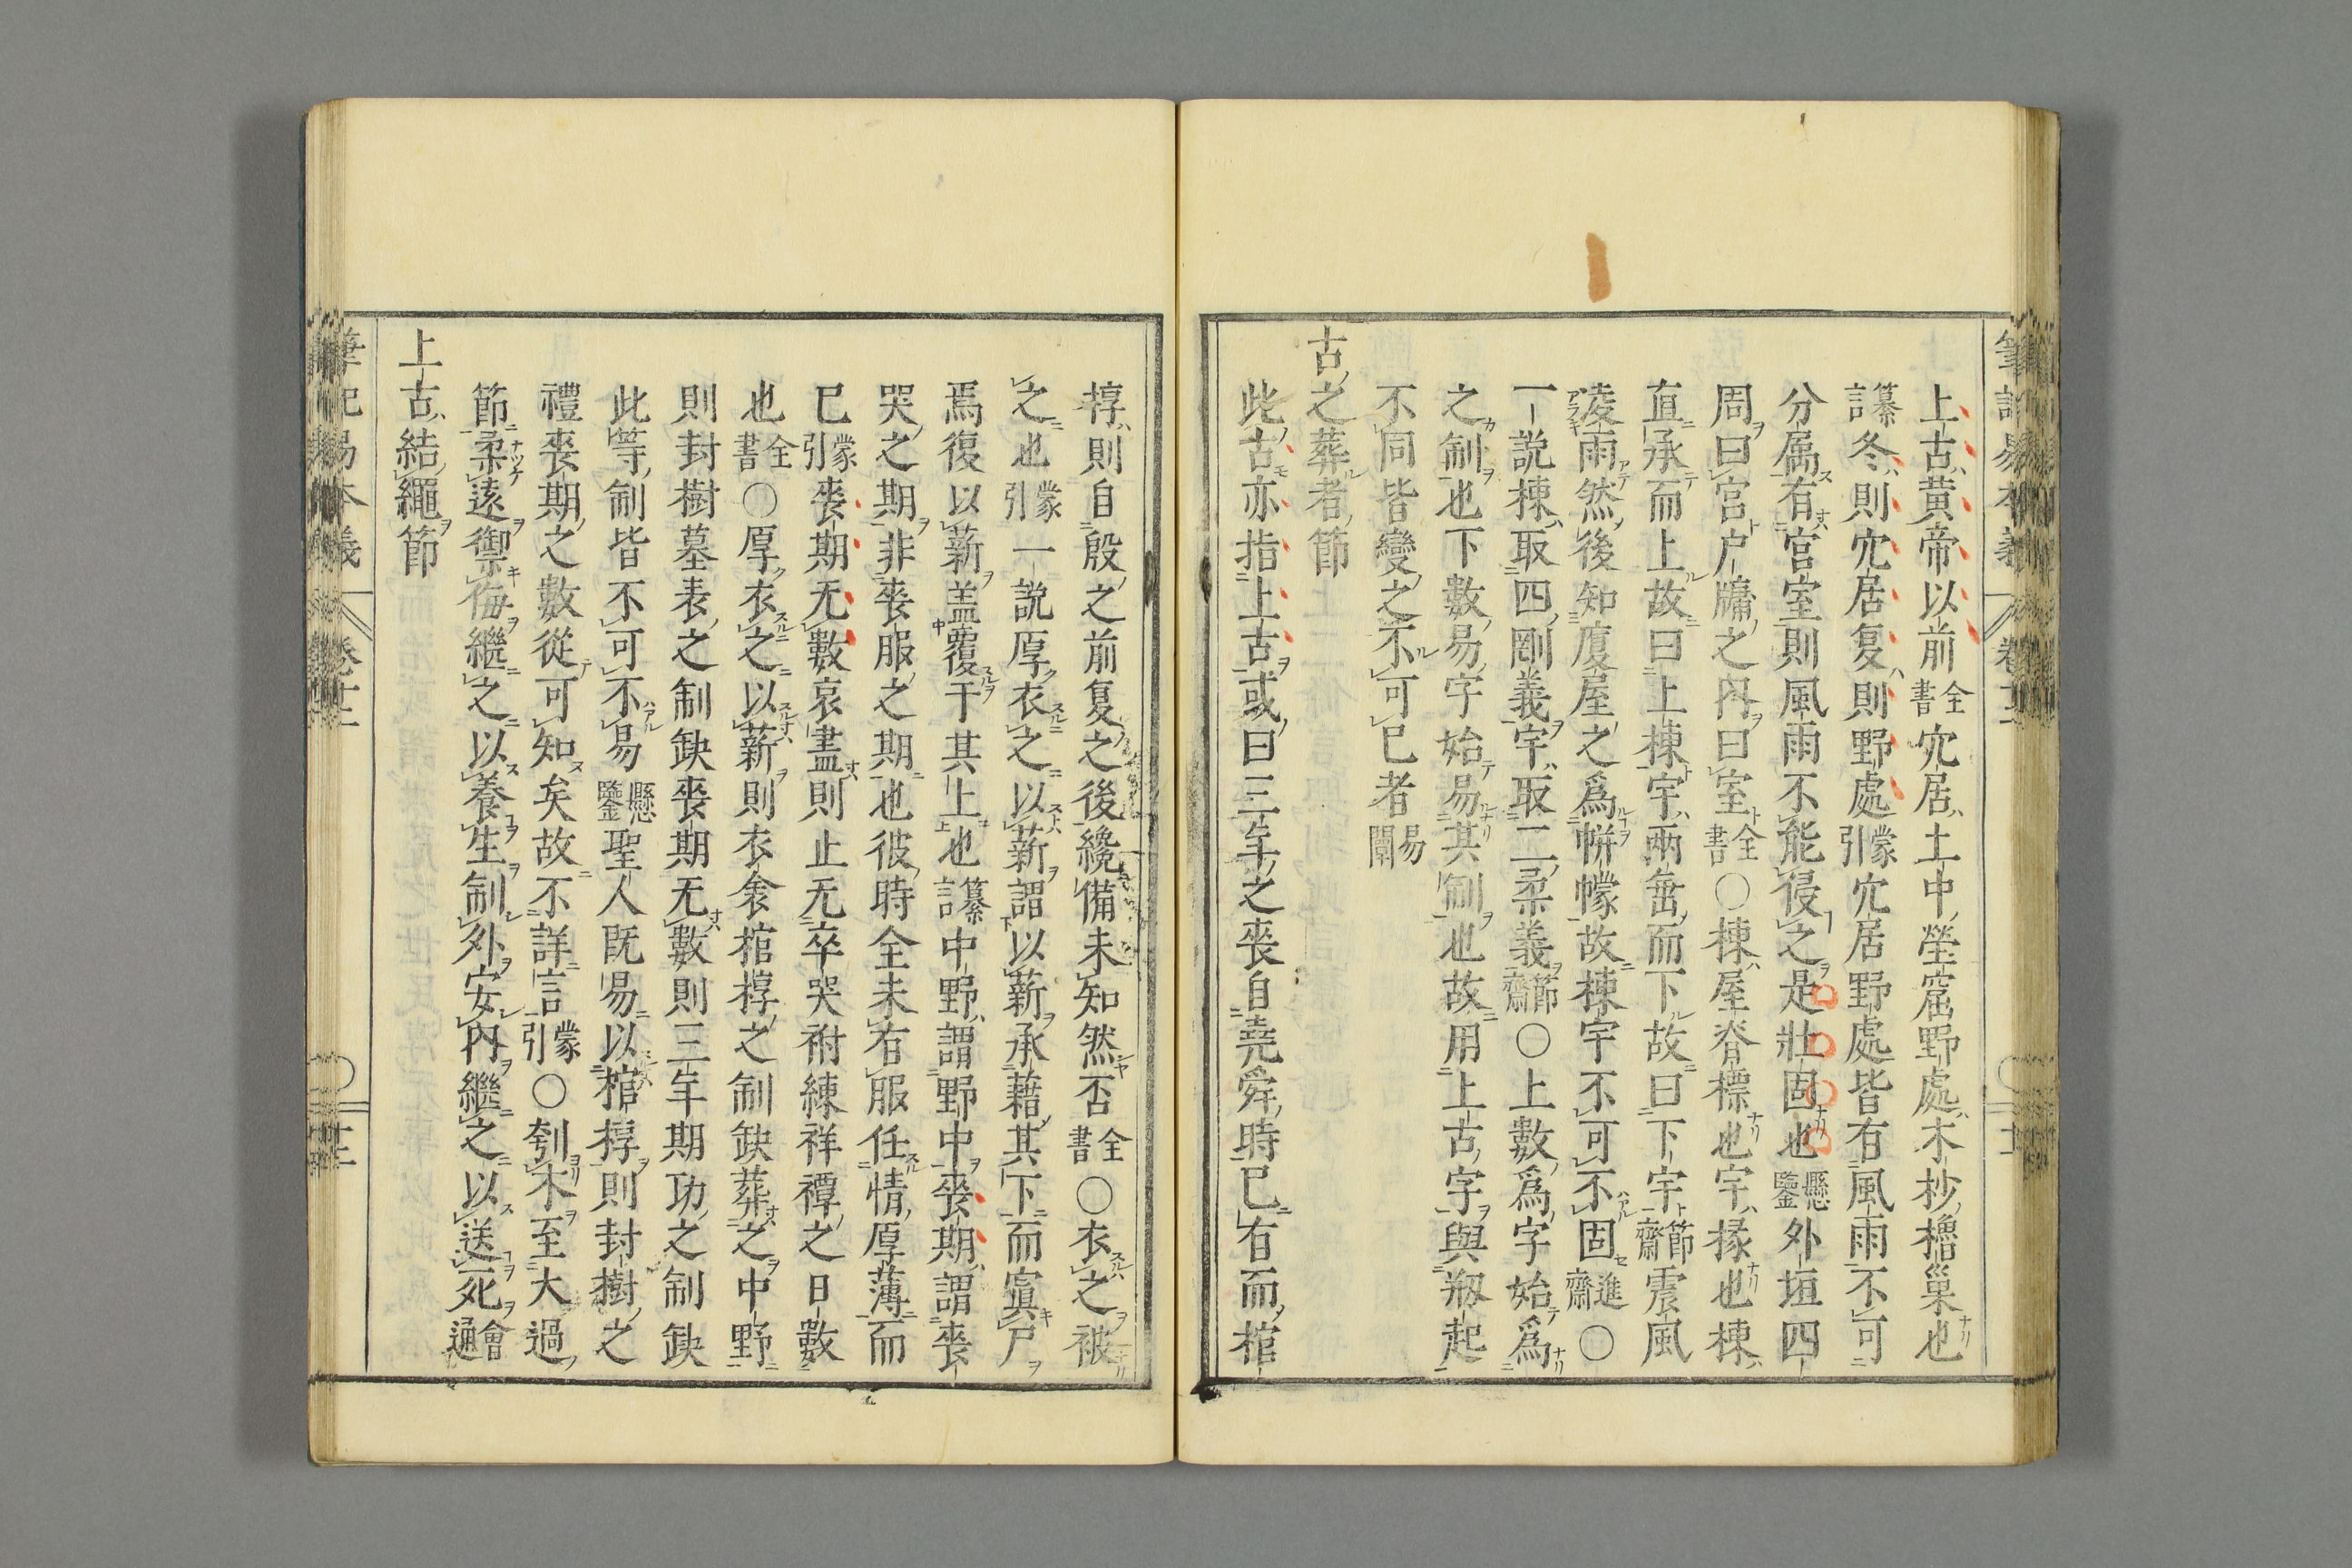 上古黄帝以前全書穴居土中塋窟野處木杪櫓巢也
纂言冬則穴居夏則野處蒙引穴居野處皆有風雨不可
分属有宮室則風雨不能侵之是壯固也懸鑒外垣四
周曰宮户牖之内曰室全書○棟屋脊標也宇椽也棟
直承而上故曰上棟宇兩垂而下故曰下宇節齋震風
凌雨然後知厦屋之爲帡幪故棟宇不可不固進齋○
一說棟取四剛義宇取二柔義節齋○上數爲字始爲
之制也下數易字始易其制也故用上古字與剏起
不同皆變之不可已者易闡
古之葬者節
此古亦指上古或曰三年之喪自堯舜時已有而棺
椁則自殷之前夏之後纔備未知然否全書○衣之被
之也蒙引一說厚衣之以薪謂以薪承藉其下而寘尸
焉復以薪盖覆于其上也纂言中野謂野中喪期謂喪
哭之期非喪服之期也彼時全未有服任情厚薄而
已蒙引喪期无數哀盡則止无卒哭祔練祥禫之日數
也全書○厚衣之以薪則衣衾棺椁之制缺葬之中野
則封樹墓表之制缺喪期无數則三年期功之制缺
此等制皆不可不易懸鑒聖人既易以棺椁則封樹之
禮喪期之數從可知矣故不詳言蒙引○刳木至大過
節柔遠禦侮繼之以養生制外安内繼之以送死會通
上古結繩節
筆記易本義 卷十二 十二